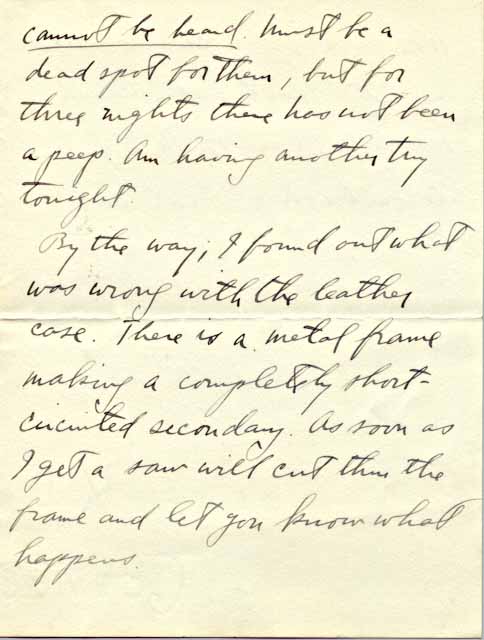 cannot be heard. Must be a
dead spot for them, but for
three nights there has not been
a peep. Am having another try
tonight.
By the way, I found out what
was wrong with the leather
case. There is a metal frame
making a completely short-
circuited secondary. As soon as
I get a saw will cut thru the
frame and let you know what
happens.